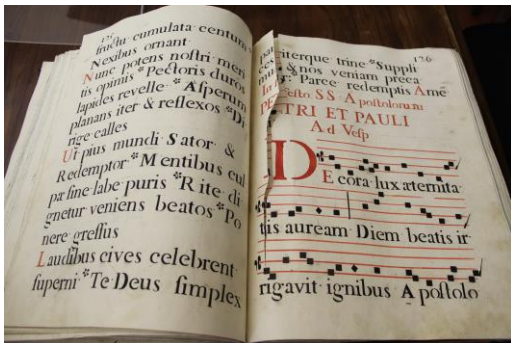 175
fructu cumulata centum
Nexibus ornant
Nunc potens nostri meri
tis opimis * Pectoris duros
lapides revelle * Asperum
planans iter & reflexos * Di
rige calles
Ut pius mundi Sator &
Redemptor * Mentibus cul
pæ sine labe puris * Rite di
gnetur veniens beatos * Po
nere gressus
Laudibus cives celebrent
superni * Te Deus simplex
176
pariterque trine * Suppli
ces & nos veniam preca
mur: Parce redemptis Amē
In Festo SS Apostolorum
PETRI ET PAULI
Ad Vesp
DE cora lux æternita
tis auream Diem beatis ir
rigavit ignibus Apostolo